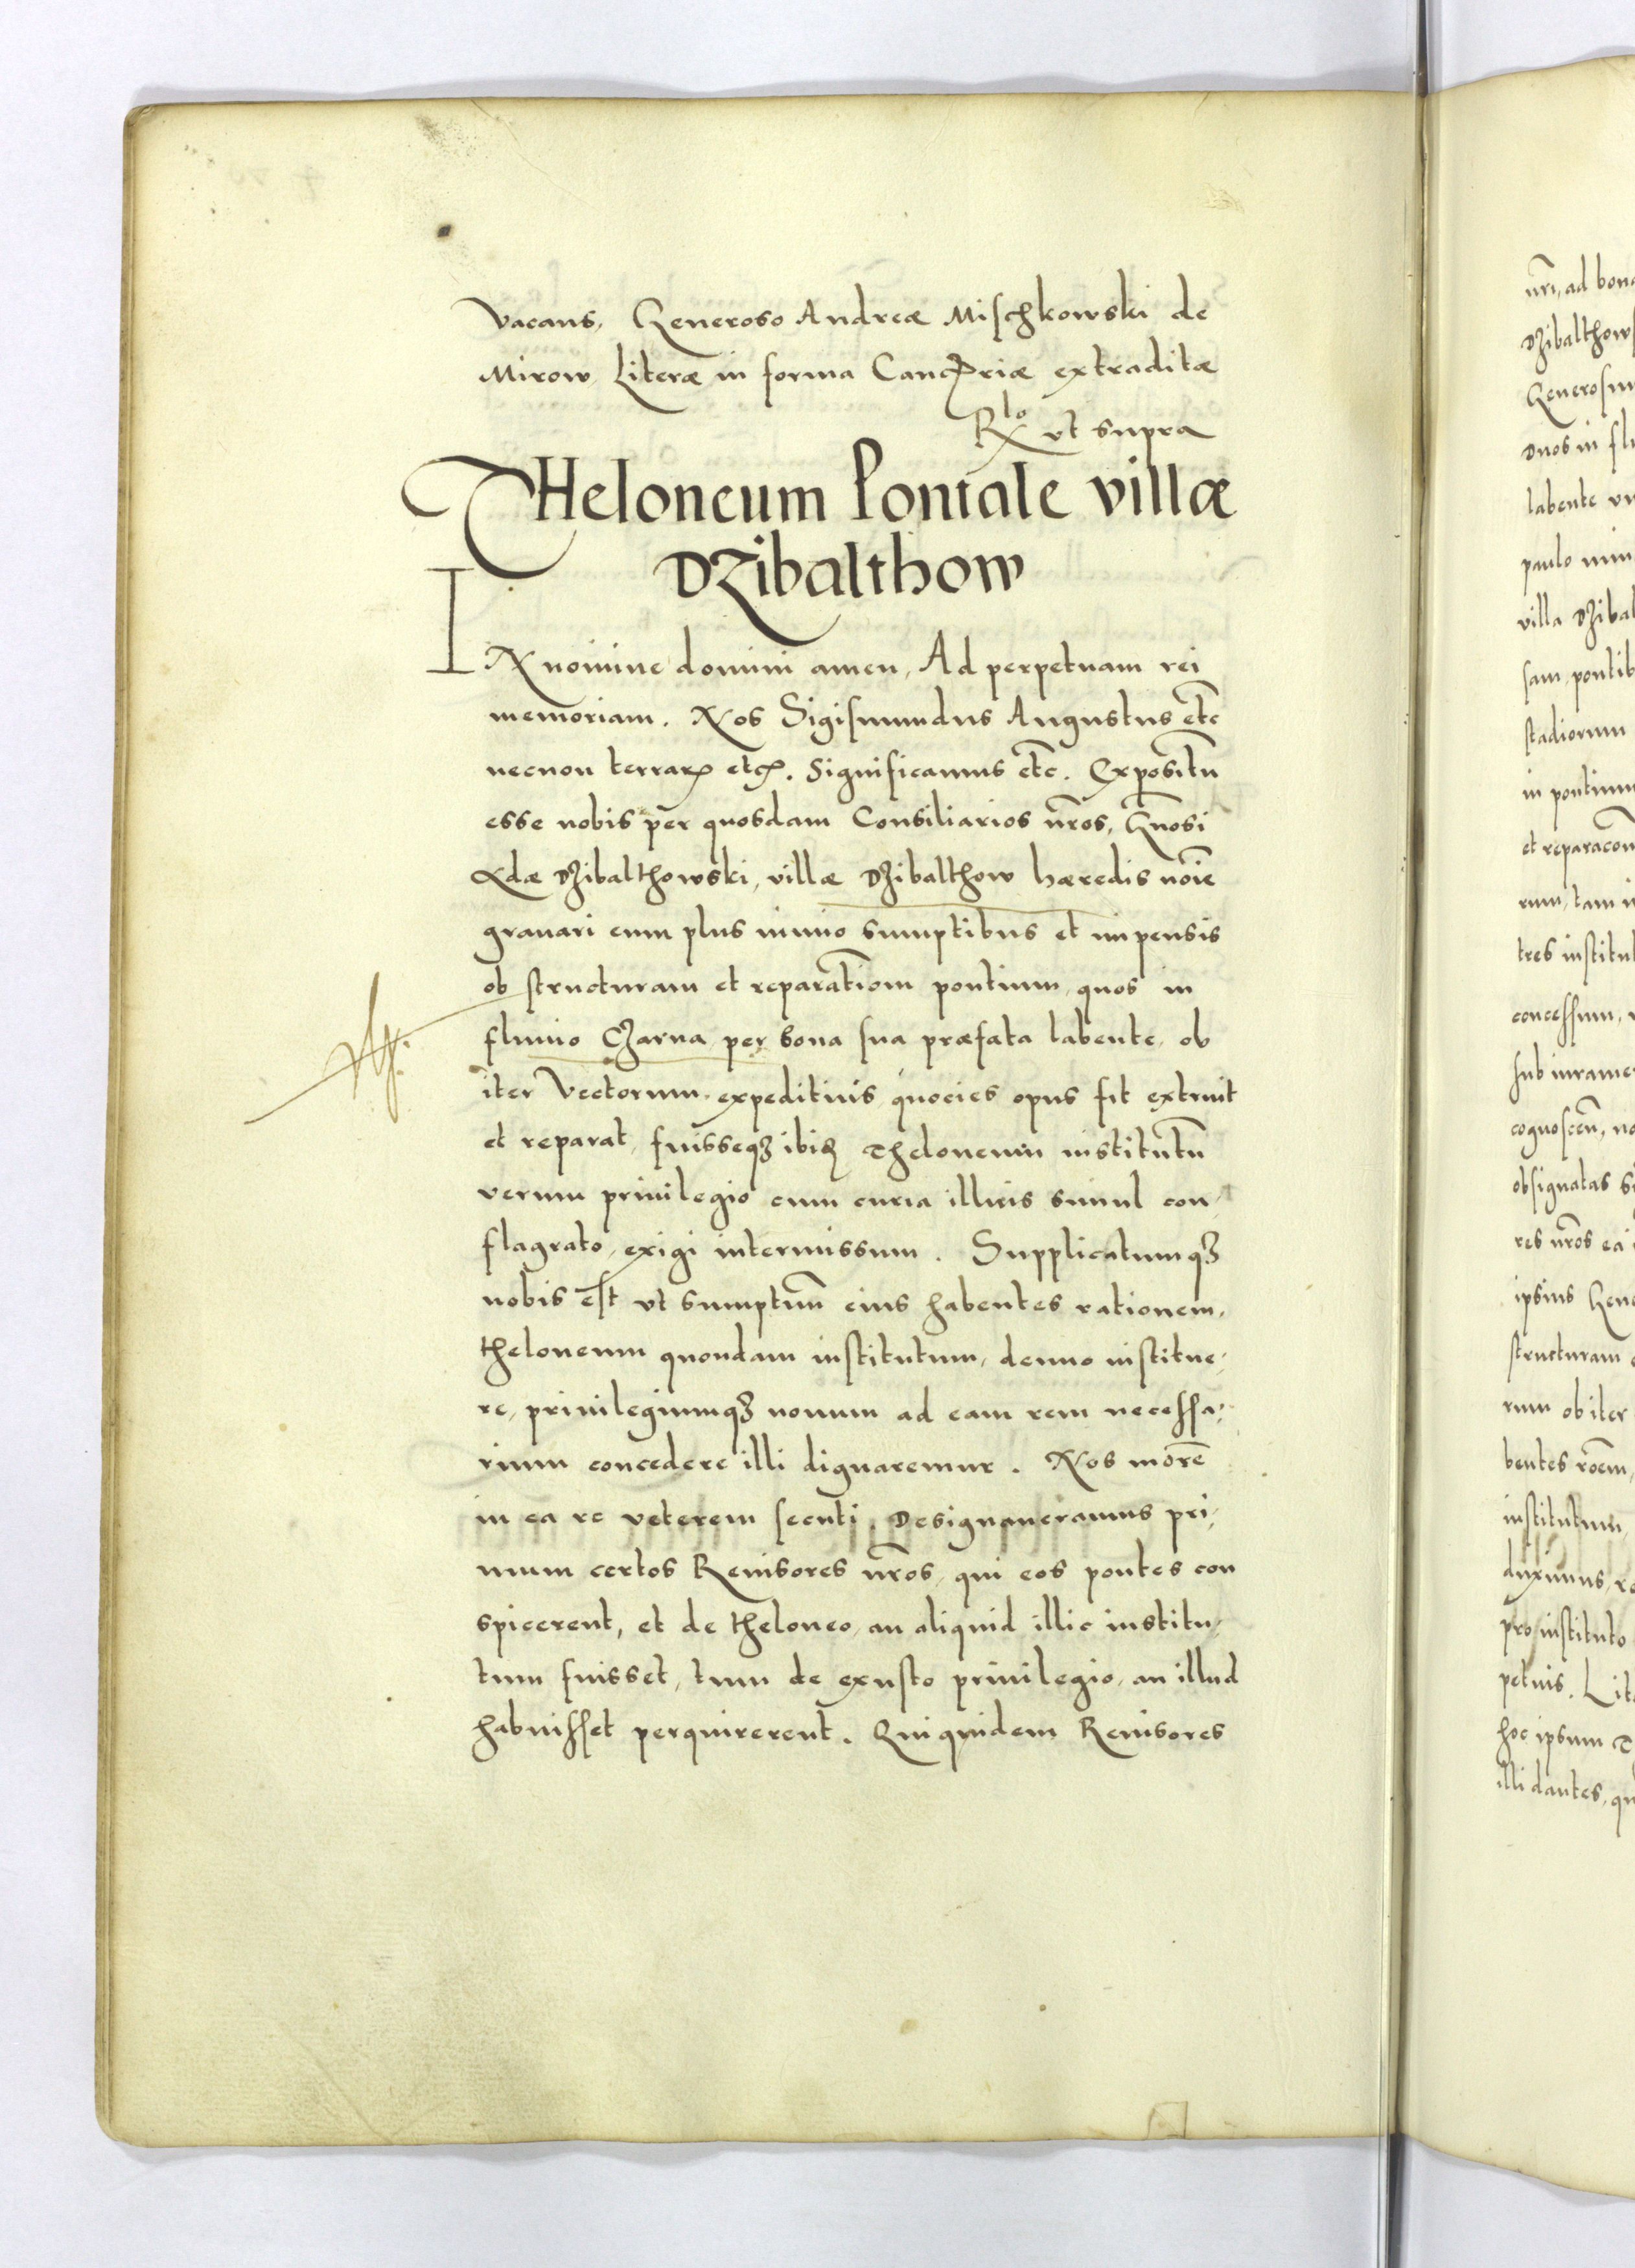 Vacans, Generoso Andreæ Mischkowski de
Mirow, Literæ in forma Cancꝭriæ extraditæ
Rlo vt supra
THeloneum Pontale villæ
DZibalthow
IN nomine domini amen, Ad perpetuam rei
memoriam. Nos Sigismundus Augustus etc̄
necnon terrarꝝ etcꝭ. Significamus etc̄. Expositū
esse nobis per quosdam Consiliarios nr̄os, Gn̄osi
Adæ DZibalthowski, villæ DZibalthow hæredis noīe
grauari eum plus nimio sumptibus et impensis
ob structuram et reparatiōm pontium, quos in
fluuio CZarna, per bona sua præfata labente, ob
iter Vectorum, expeditius quocies opus fit extruit
et reparat, fuisseqꝫ ibiꝶ Theloneum institutū
verum priuilegio cum curia illius simul con-
flagrato, exigi intermissum. Supplicatumqꝫ
nobis est vt sumptuū eius habentes rationem,
theloneum quondam institutum, denuo institue-
re, priuilegiumqꝫ nouum ad eam rem necessa-
rium concedere illi dignaremur. Nos morē
in ea re veterem secuti, Designaueramus pri-
mum certos Reuisores nr̄os, qui eos pontes con
spicerent, et de theloneo, an aliquid illic institu-
tum fuisset, tum de exusto priuilegio, an illud
habuisset perquirerent. Quiquidem Reuisores
nr̄i, ad bona
DZibalthows
Generosum
duos in flu
labente vn
paulo min
villa DZibal
sam, pontib
stadiorum
in pontium
et reparacōn
rum, tam i
tres institut
concessum,
sub iurame
cognoscen̄, no
obsignatas
res nr̄os ea
ipsius Gene
structuram
rum ob iter
bentes roēm,
institutum,
duximus, re
pro instituto
petuis. Lit
hoc ipsum T
illi dantes, qu